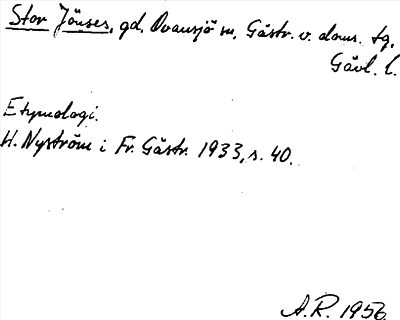 Stor Jönses, gd, Ovansjö sn, Gästr. v. doms. tg,
Gävl. l.
Etymologi.
H. Nyström i Fr. Gästr. 1933, s. 40.
A.R. 1956